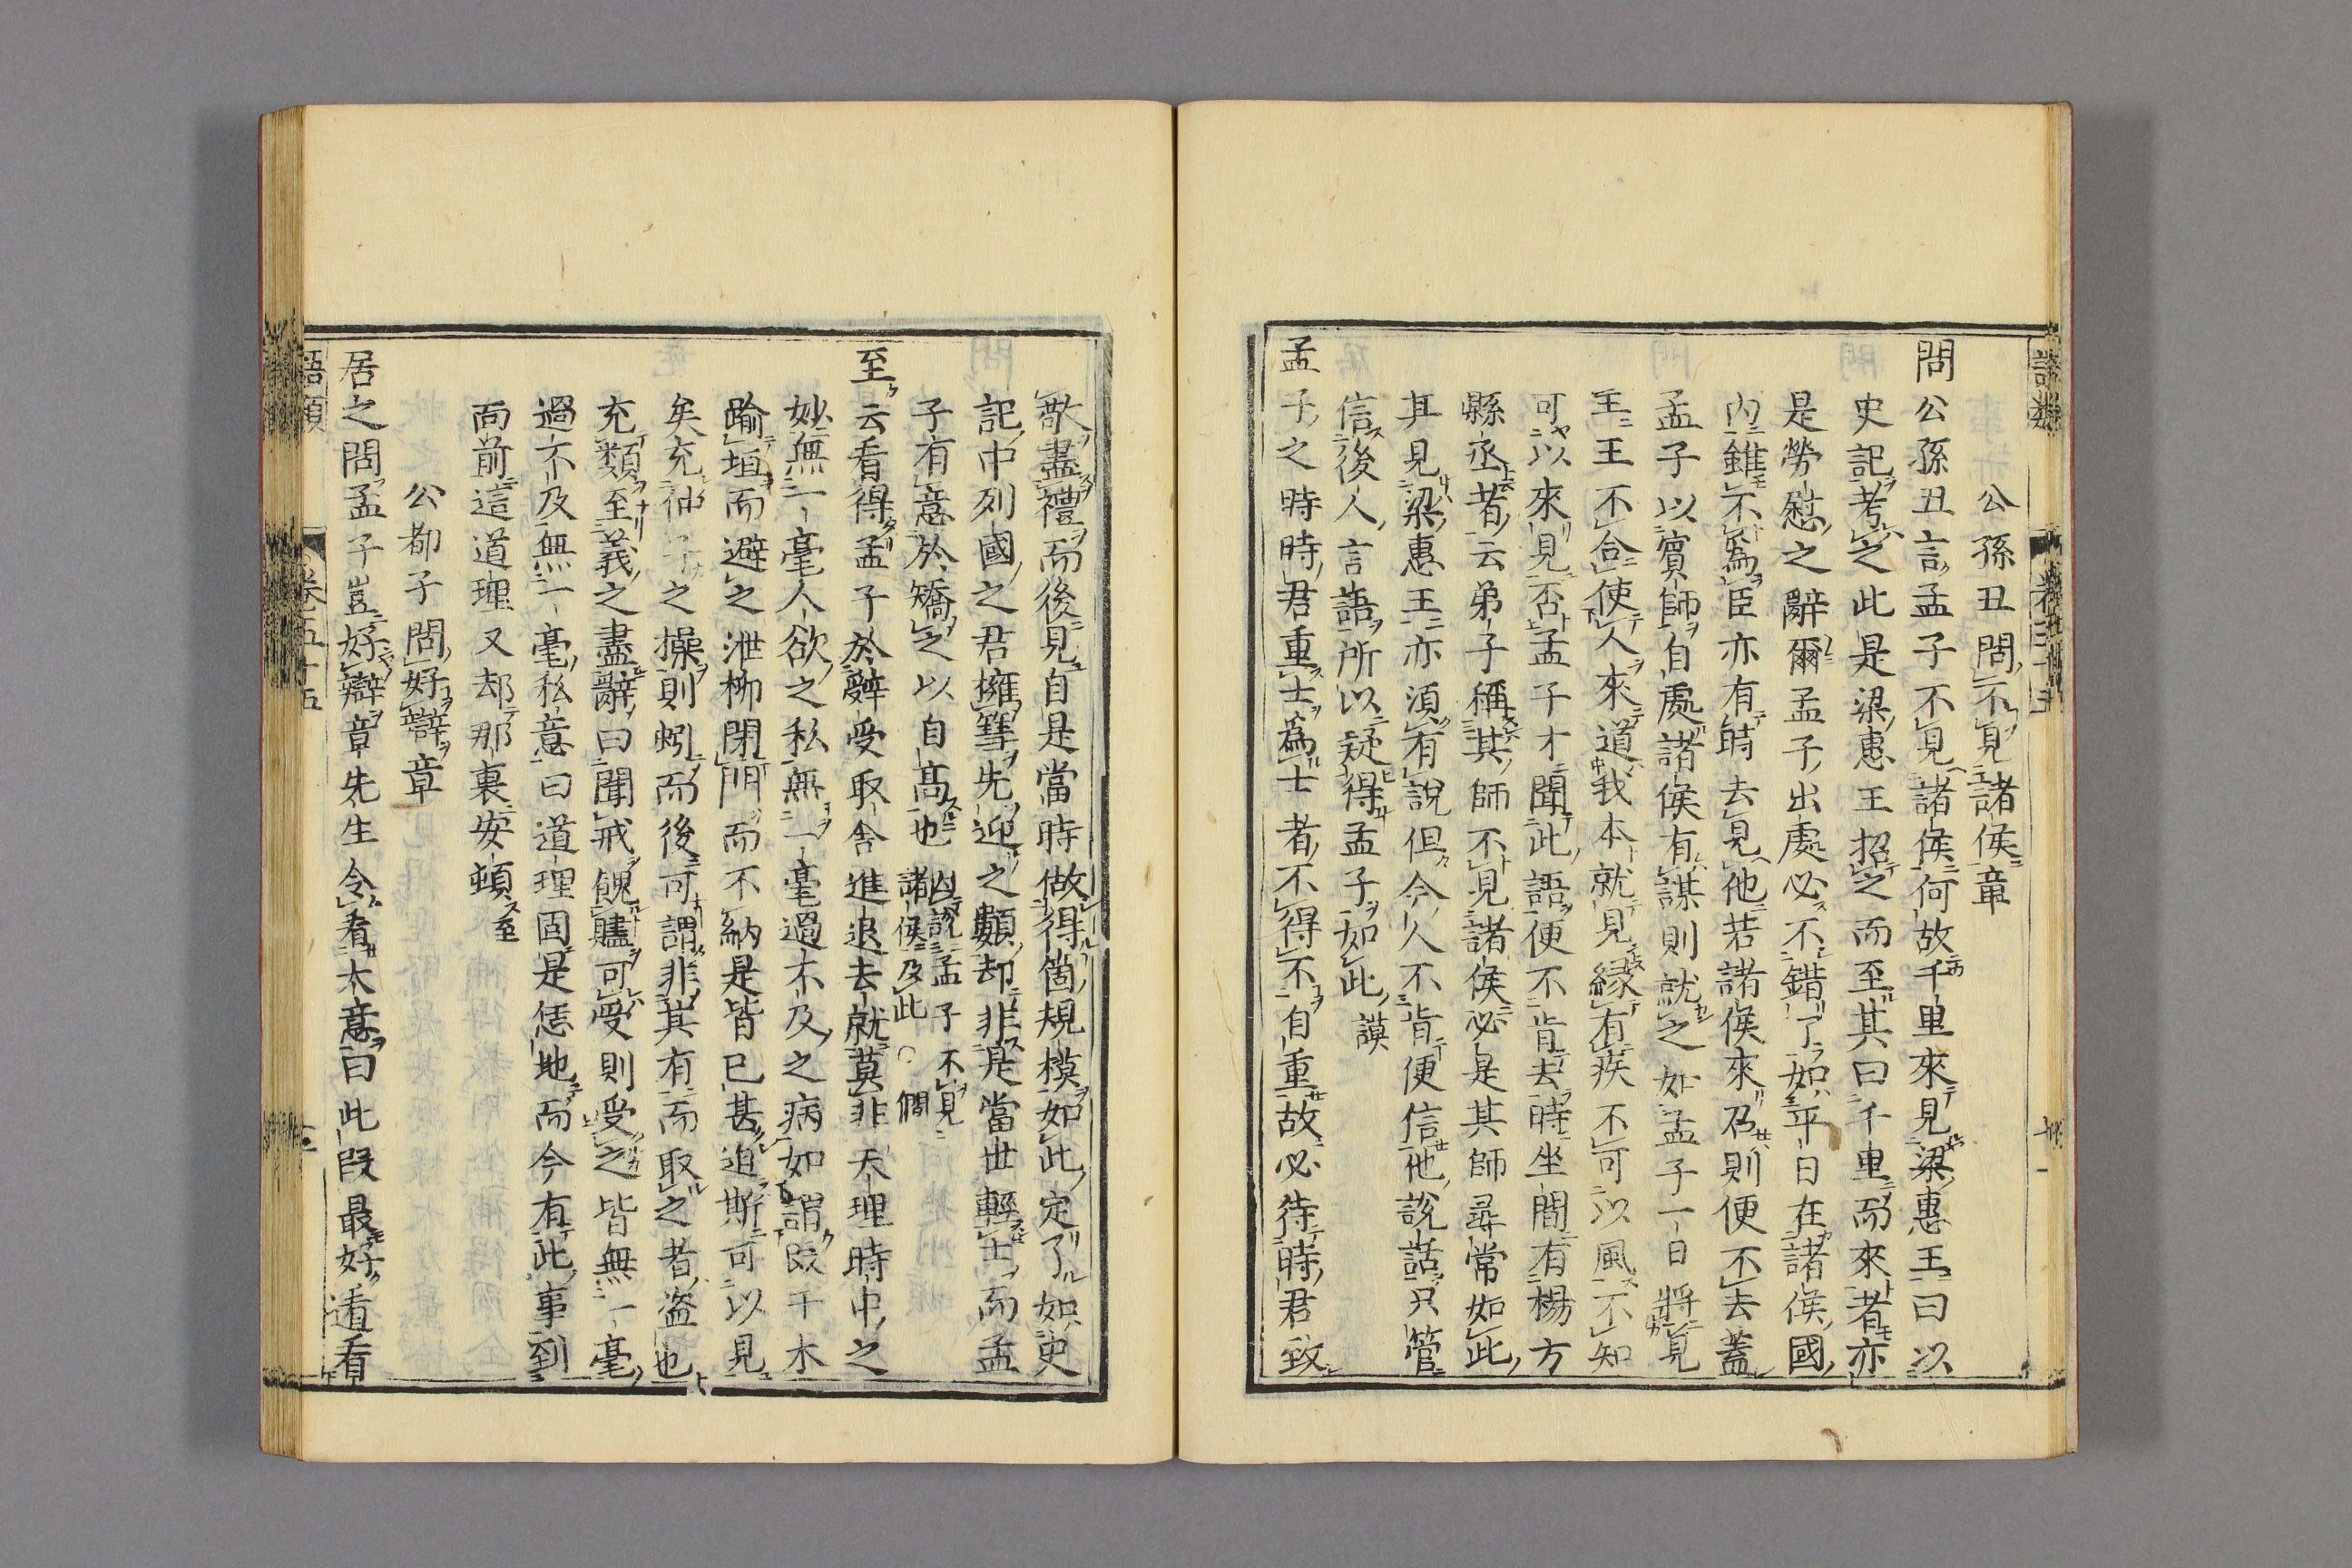 公孫丑問不見諸侯章
問公孫丑言孟子不見諸侯何故千里來見梁惠王曰以
史記考之此是梁惠王招之而至其曰千里而來者亦
是勞慰之辭爾孟子出處必不錯了如平日在諸侯國
內雖不爲臣亦有時去見他若諸侯來乃則便不去蓋
孟子以賓師自處諸侯有謀則就之如孟子一日將見
王王不合使人來道我本就見緣有疾不可以風不知
可以來見否孟子才聞此語便不肯去時坐間有楊方
縣丞者云弟子稱其師不見諸侯必是其師尋常如此
其見梁惠王亦須有說但今人不肯便信他說話只管
信後人言語所以疑得孟子如此謨
孟子之時時君重士爲士者不得不自重故必待時君致
敬盡禮而後見自是當時做得箇規模如此定了如史
記中列國之君擁篲先迎之類却非是當世輕士而孟
子有意於矯之以自高也因說孟子不見
諸侯及此○僩
至云看得孟子於辭受取舍進退去就莫非天理時中之
妙無一毫人欲之私無一毫過不及之病如謂段干木
踰垣而避之泄柳閉門而不納是皆已甚迫斯可以見
矣充仲子之操則蚓而後可謂非其有而取之者盜也
充類至義之盡辭曰聞戒餽贐可受則受之皆無一毫
過不及無一毫私意曰道理固是恁地而今有此事到
面前這道理又却那裏安頓至
公都子問好辯章
居之問孟子豈好辯章先生令看大意曰此段最好看看
語類
卷五十五